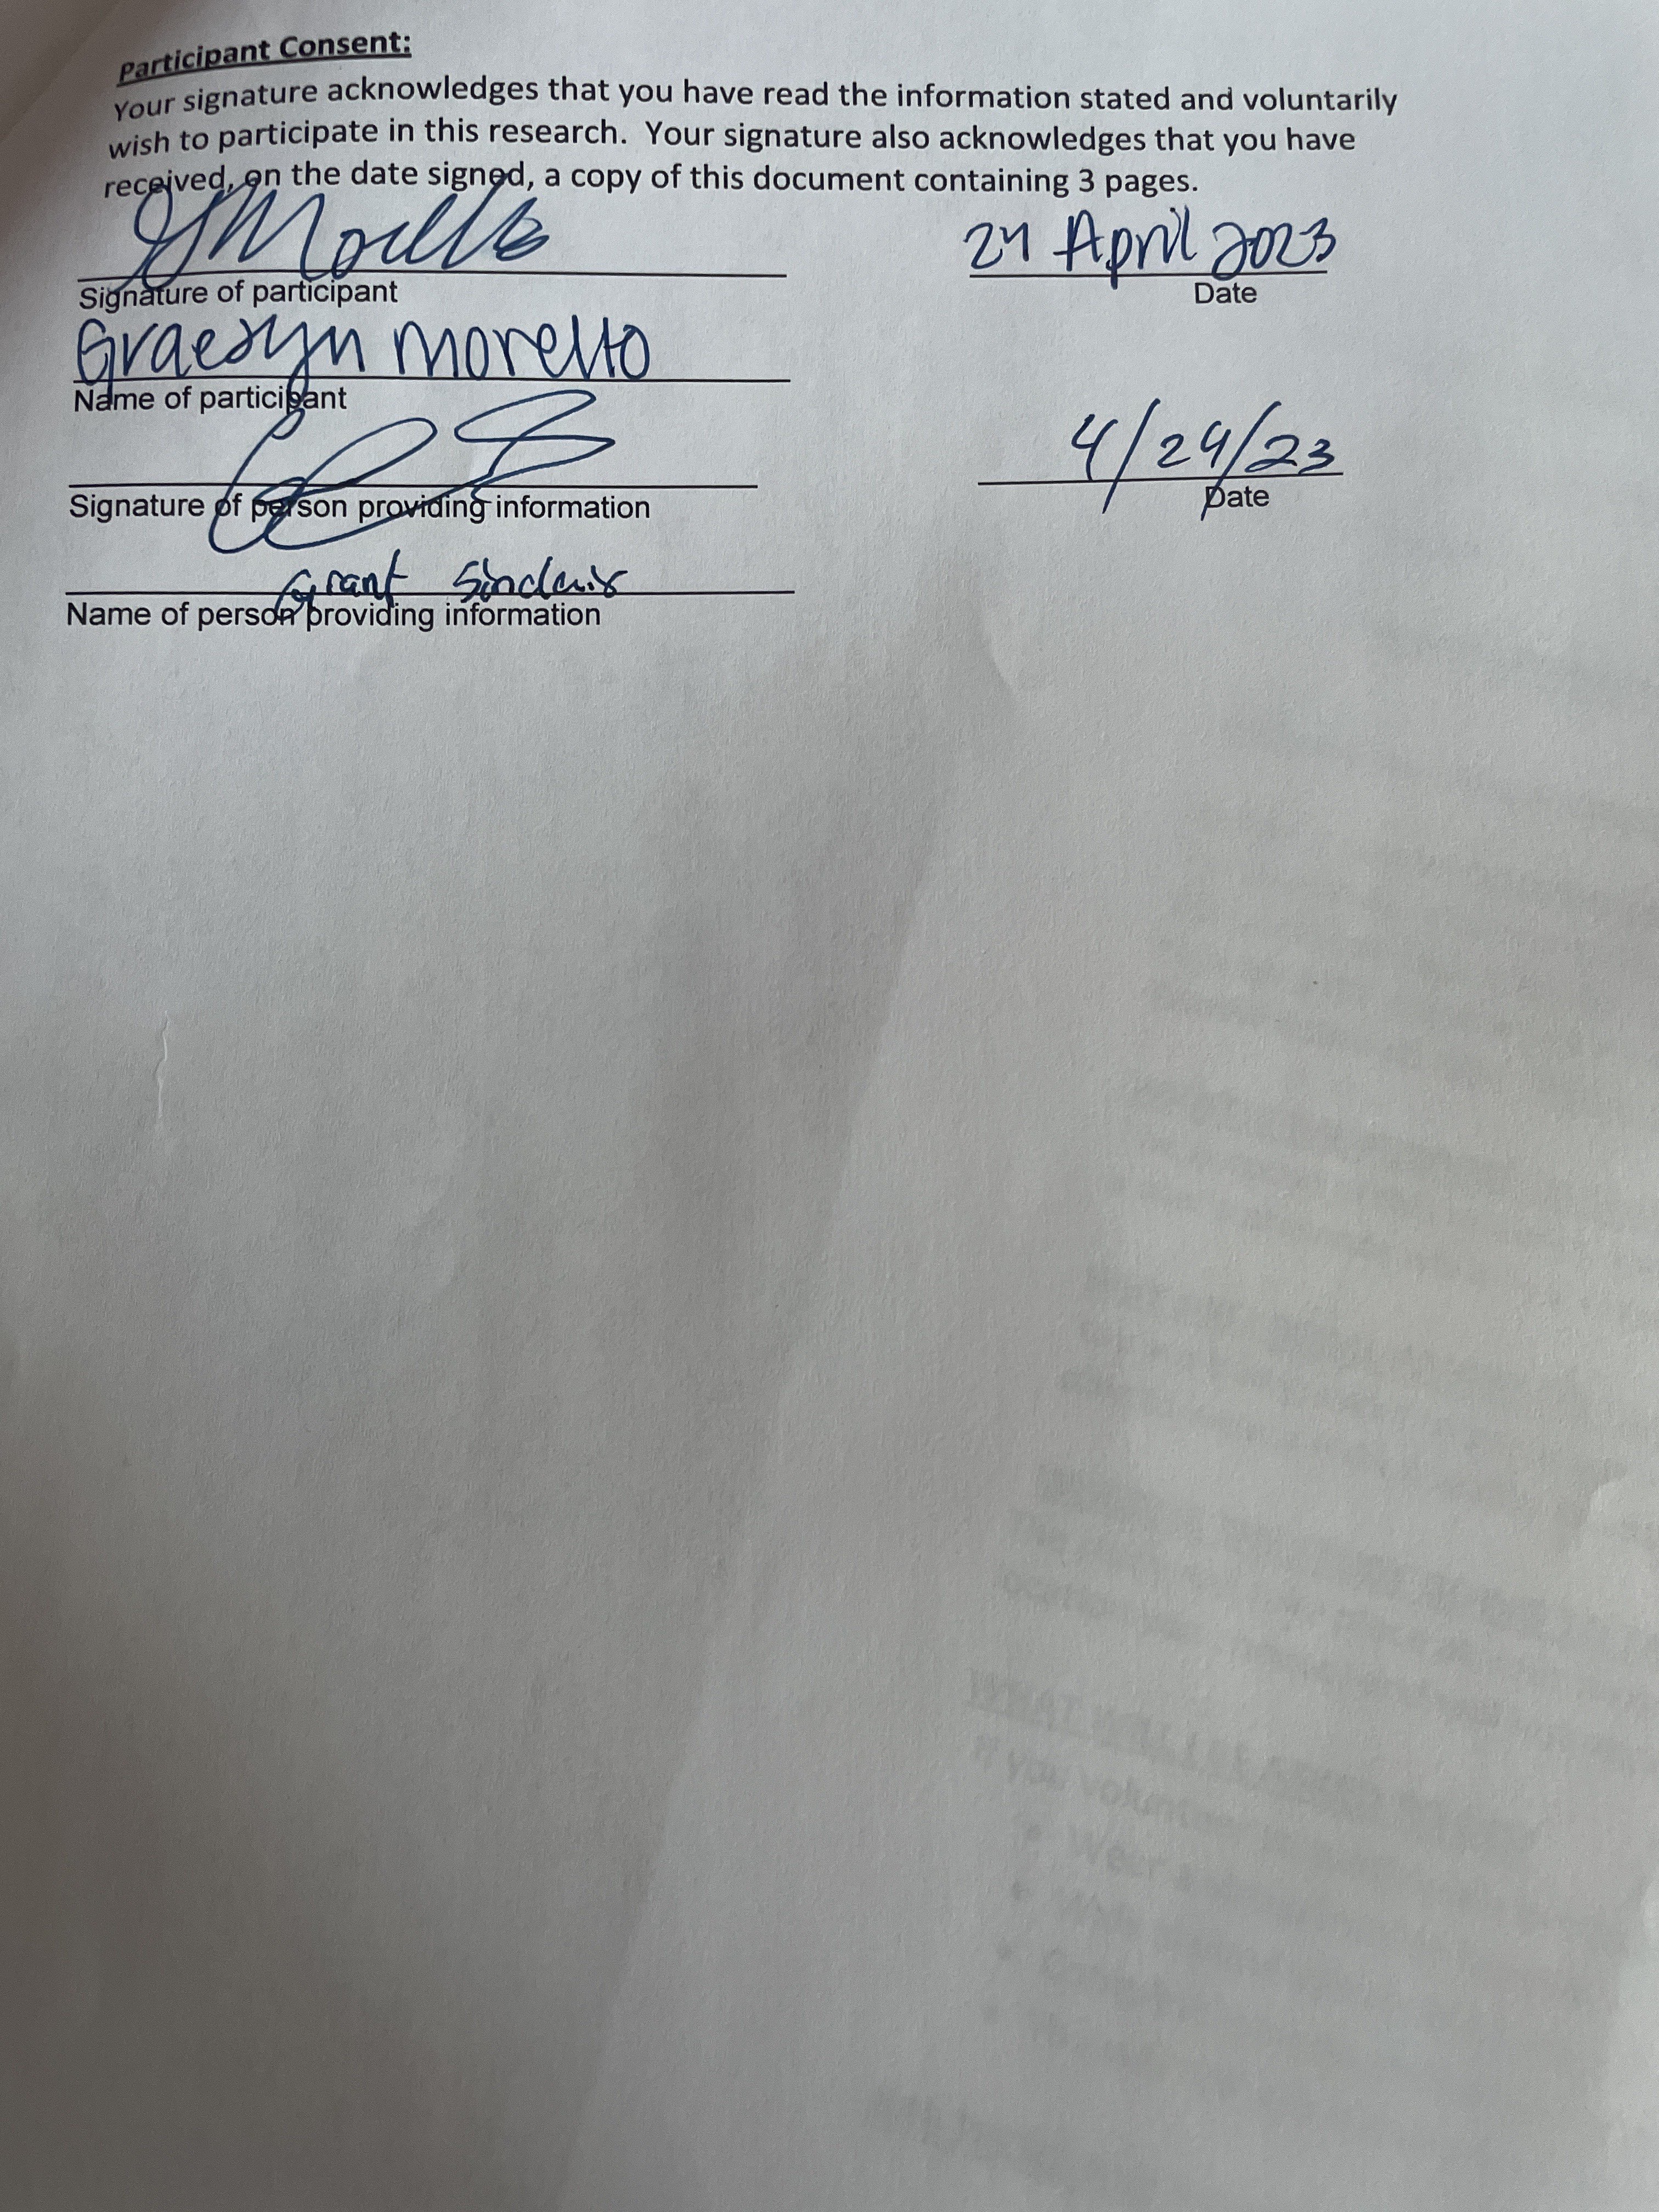 Participant Consent:
Your signature acknowledges that you have read the information stated and voluntarily
wish to participate in this research. Your signature also acknowledges that you have
received, on the date signed, a copy of this document containing 3 pages.
24 April 2023
Signature of participant Date
Graesyn Moretto
Name of participant
4/24/23
Signature of person providing information Date
Grant Sinclair
Name of person providing information
If you